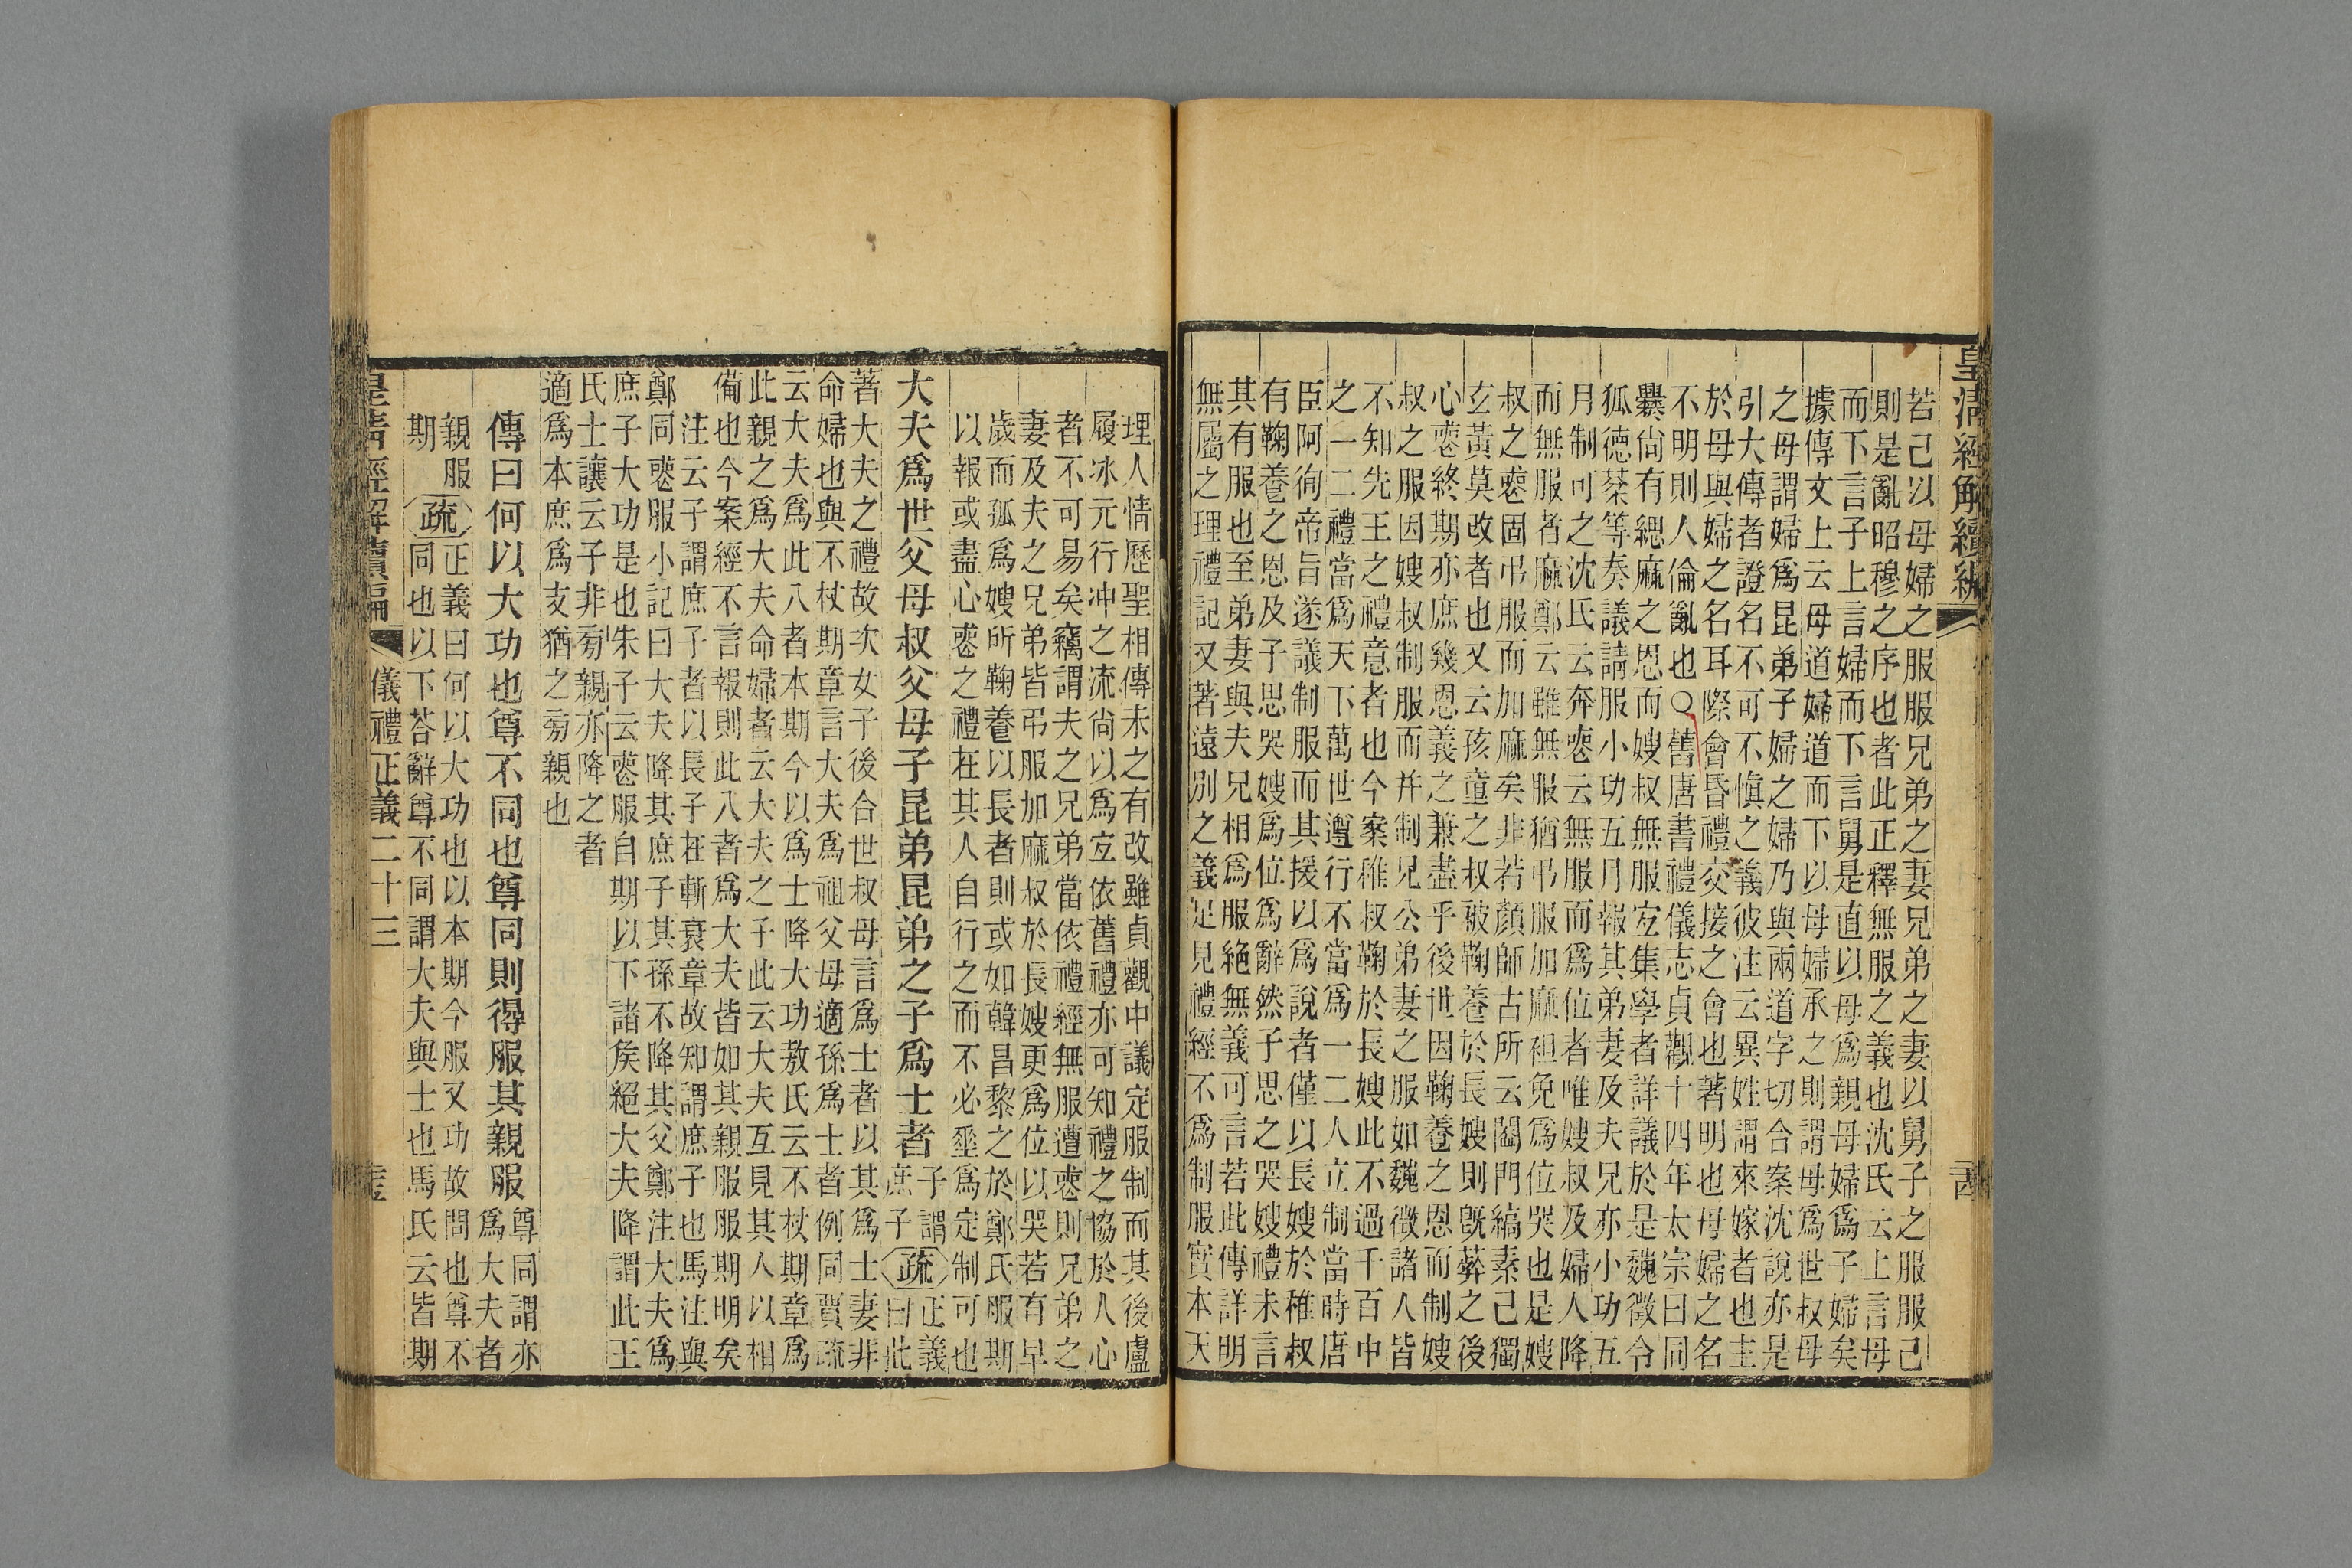 皇清經解續編
若己以母婦之服服兄弟之妻兄弟之妻以舅子之服服己
則是亂昭穆之序也者此正釋無服之義也沈氏云上言母
而下言子上言婦而下言舅是直以母爲親母婦爲子婦矣
據傳文上云母道婦道而下以母婦承之則謂母爲世叔母
之母謂婦爲昆弟子婦之婦乃與兩道字切合案沈說亦是
引大傳者證名不可不愼之義彼注云異姓謂來嫁者也主
於母與婦之名耳際會昏禮交接之會也著明也母婦之名
不明則人倫亂也○舊唐書禮儀志貞觀十四年太宗曰同
爨尙有緦麻之恩而嫂叔無服宐集學者詳議於是魏徵令
狐德棻等奏議請服小功五月報其弟妻及夫兄亦小功五
月制可之沈氏云奔喪云無服而爲位者唯嫂叔及婦人降
而無服者麻鄭云雖無服猶弔服加麻袒免爲位哭也是嫂
叔之喪固弔服而加麻矣非若顏師古所云閤門縞素己獨
玄黃莫改者也又云孩童之叔敲鞠養於長嫂則旣葬之後
心喪終期亦庶幾恩義之兼盡乎後世因鞠養之恩而制嫂
叔之服因嫂叔制服而幷制兄公弟妻之服如魏徵諸人皆
不知先王之禮意者也今案稚叔鞠於長嫂此不過千百中
之一二禮當爲天下萬世遵行不當爲一二人立制當時唐
臣阿徇帝旨遂議制服而其援以爲說者僅以長嫂於稚叔
有鞠養之恩及子思哭嫂爲位爲辭然子思之哭嫂禮未言
其有服也至弟妻與夫兄相爲服絶無義可言若此傳詳明
無屬之理禮記又著遠別之義足見禮經不爲制服實本天
理人情歷聖相傳未之有改雖貞觀中議定服制而其後盧
履冰元行沖之流尙以爲宐依舊禮亦可知禮之協於人心
者不可易矣竊謂夫之兄弟當依禮經無服遭喪則兄弟之
妻及夫之兄弟皆弔服加麻叔於長嫂更爲位以哭若有早
歲而孤爲嫂所鞠養以長者則或如韓昌黎之於鄭氏服期
以報或盡心喪之禮在其人自行之而不必垩爲定制可也
大夫爲世父母叔父母子昆弟昆弟之子爲士者
子謂
庶子
疏
正義
曰此
著大夫之禮故次女子後合世叔母言爲士者以其爲士妻非
命婦也與不杖期章言大夫爲祖父母適孫爲士者例同賈疏
云大夫爲此八者本期今以爲士降大功敖氏云不杖期章爲
此親之爲大夫命婦者云大夫之子此云大夫互見其人以相
備也今案經不言報則此八者爲大夫皆如其親服服期明矣
注云子謂庶子者以長子在斬衰章故知謂庶子也馬注與
鄭同喪服小記曰大夫降其庶子其孫不降其父鄭注大夫爲
庶子大功是也朱子云喪服自期以下諸矦絕大夫降謂此王
氏士讓云子非旁親亦降之者
適爲本庶爲支猶之旁親也
傳曰何以大功也尊不同也尊同則得服其親服
尊同謂亦
爲大夫者
親服
期
疏
正義曰何以大功也以本期今服又功故問也尊不
同也以下荅辭尊不同謂大夫與士也馬氏云皆期
皇清經解續編
儀禮正義二十三